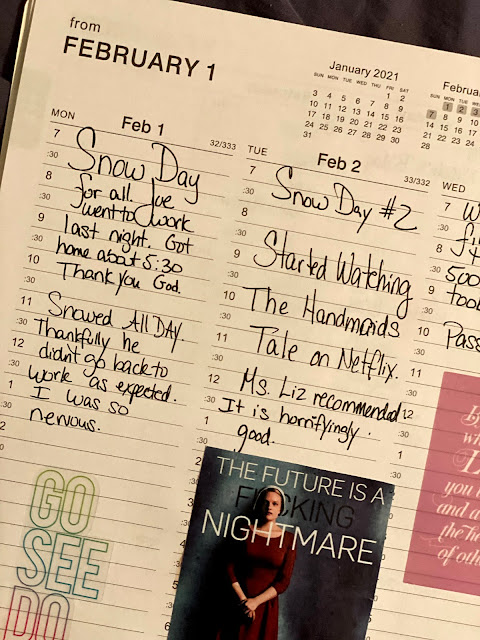 from
FEBRUARY 1
January 2021
SUN MON TUE WED THU FRI SAT
1 2
3 4 5 6 7 8 9
10 11 12 13 14 15 16
17 18 19 20 21 22 23
24 25 26 27 28 29 30
31
Februa
SUN MON TUE WED
1 2 3
7 8 9 10
14 15 16 17
21 22 23 24
28
MON
Feb 1
32/333
7
:30
8
:30
9
:30
10
:30
11
:30
12
:30
1
:30
2
Snow Day
for all. Joe
went to work
last night. Got
home about 5:30
Thank you God.
Snowed All DAY.
Thankfully he
didn't go back to
work as expected.
I was so
nervous.
GO
SEE
DO
TUE
Feb 2
33/332
7
:30
8
:30
9
:30
10
:30
11
:30
12
:30
1
:30
2
Snow Day #2
Started Watching
The Handmaids
Tale on Netflix.
Ms. Liz recommended
It is horrifyingly
good.
THE FUTURE IS A
FUCKING
NIGHTMARE
WED
7
:30
8
:30
9
:30
10
:30
11
:30
12
:30
1
500
took
Pass
you
and a
the he
of othe